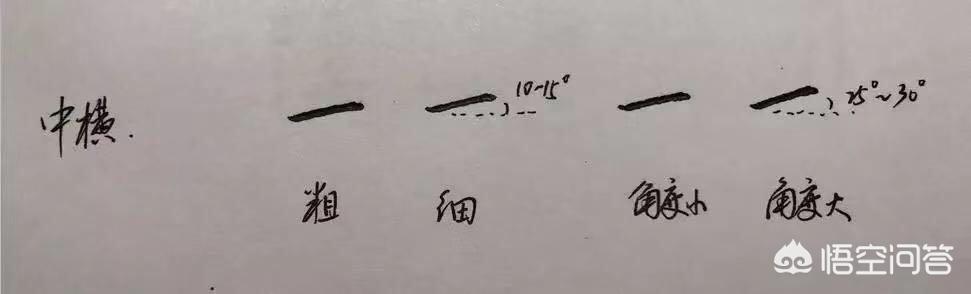 中横.
10-15°
25°~30°
粗 细 角度小 角度大
悟空问答